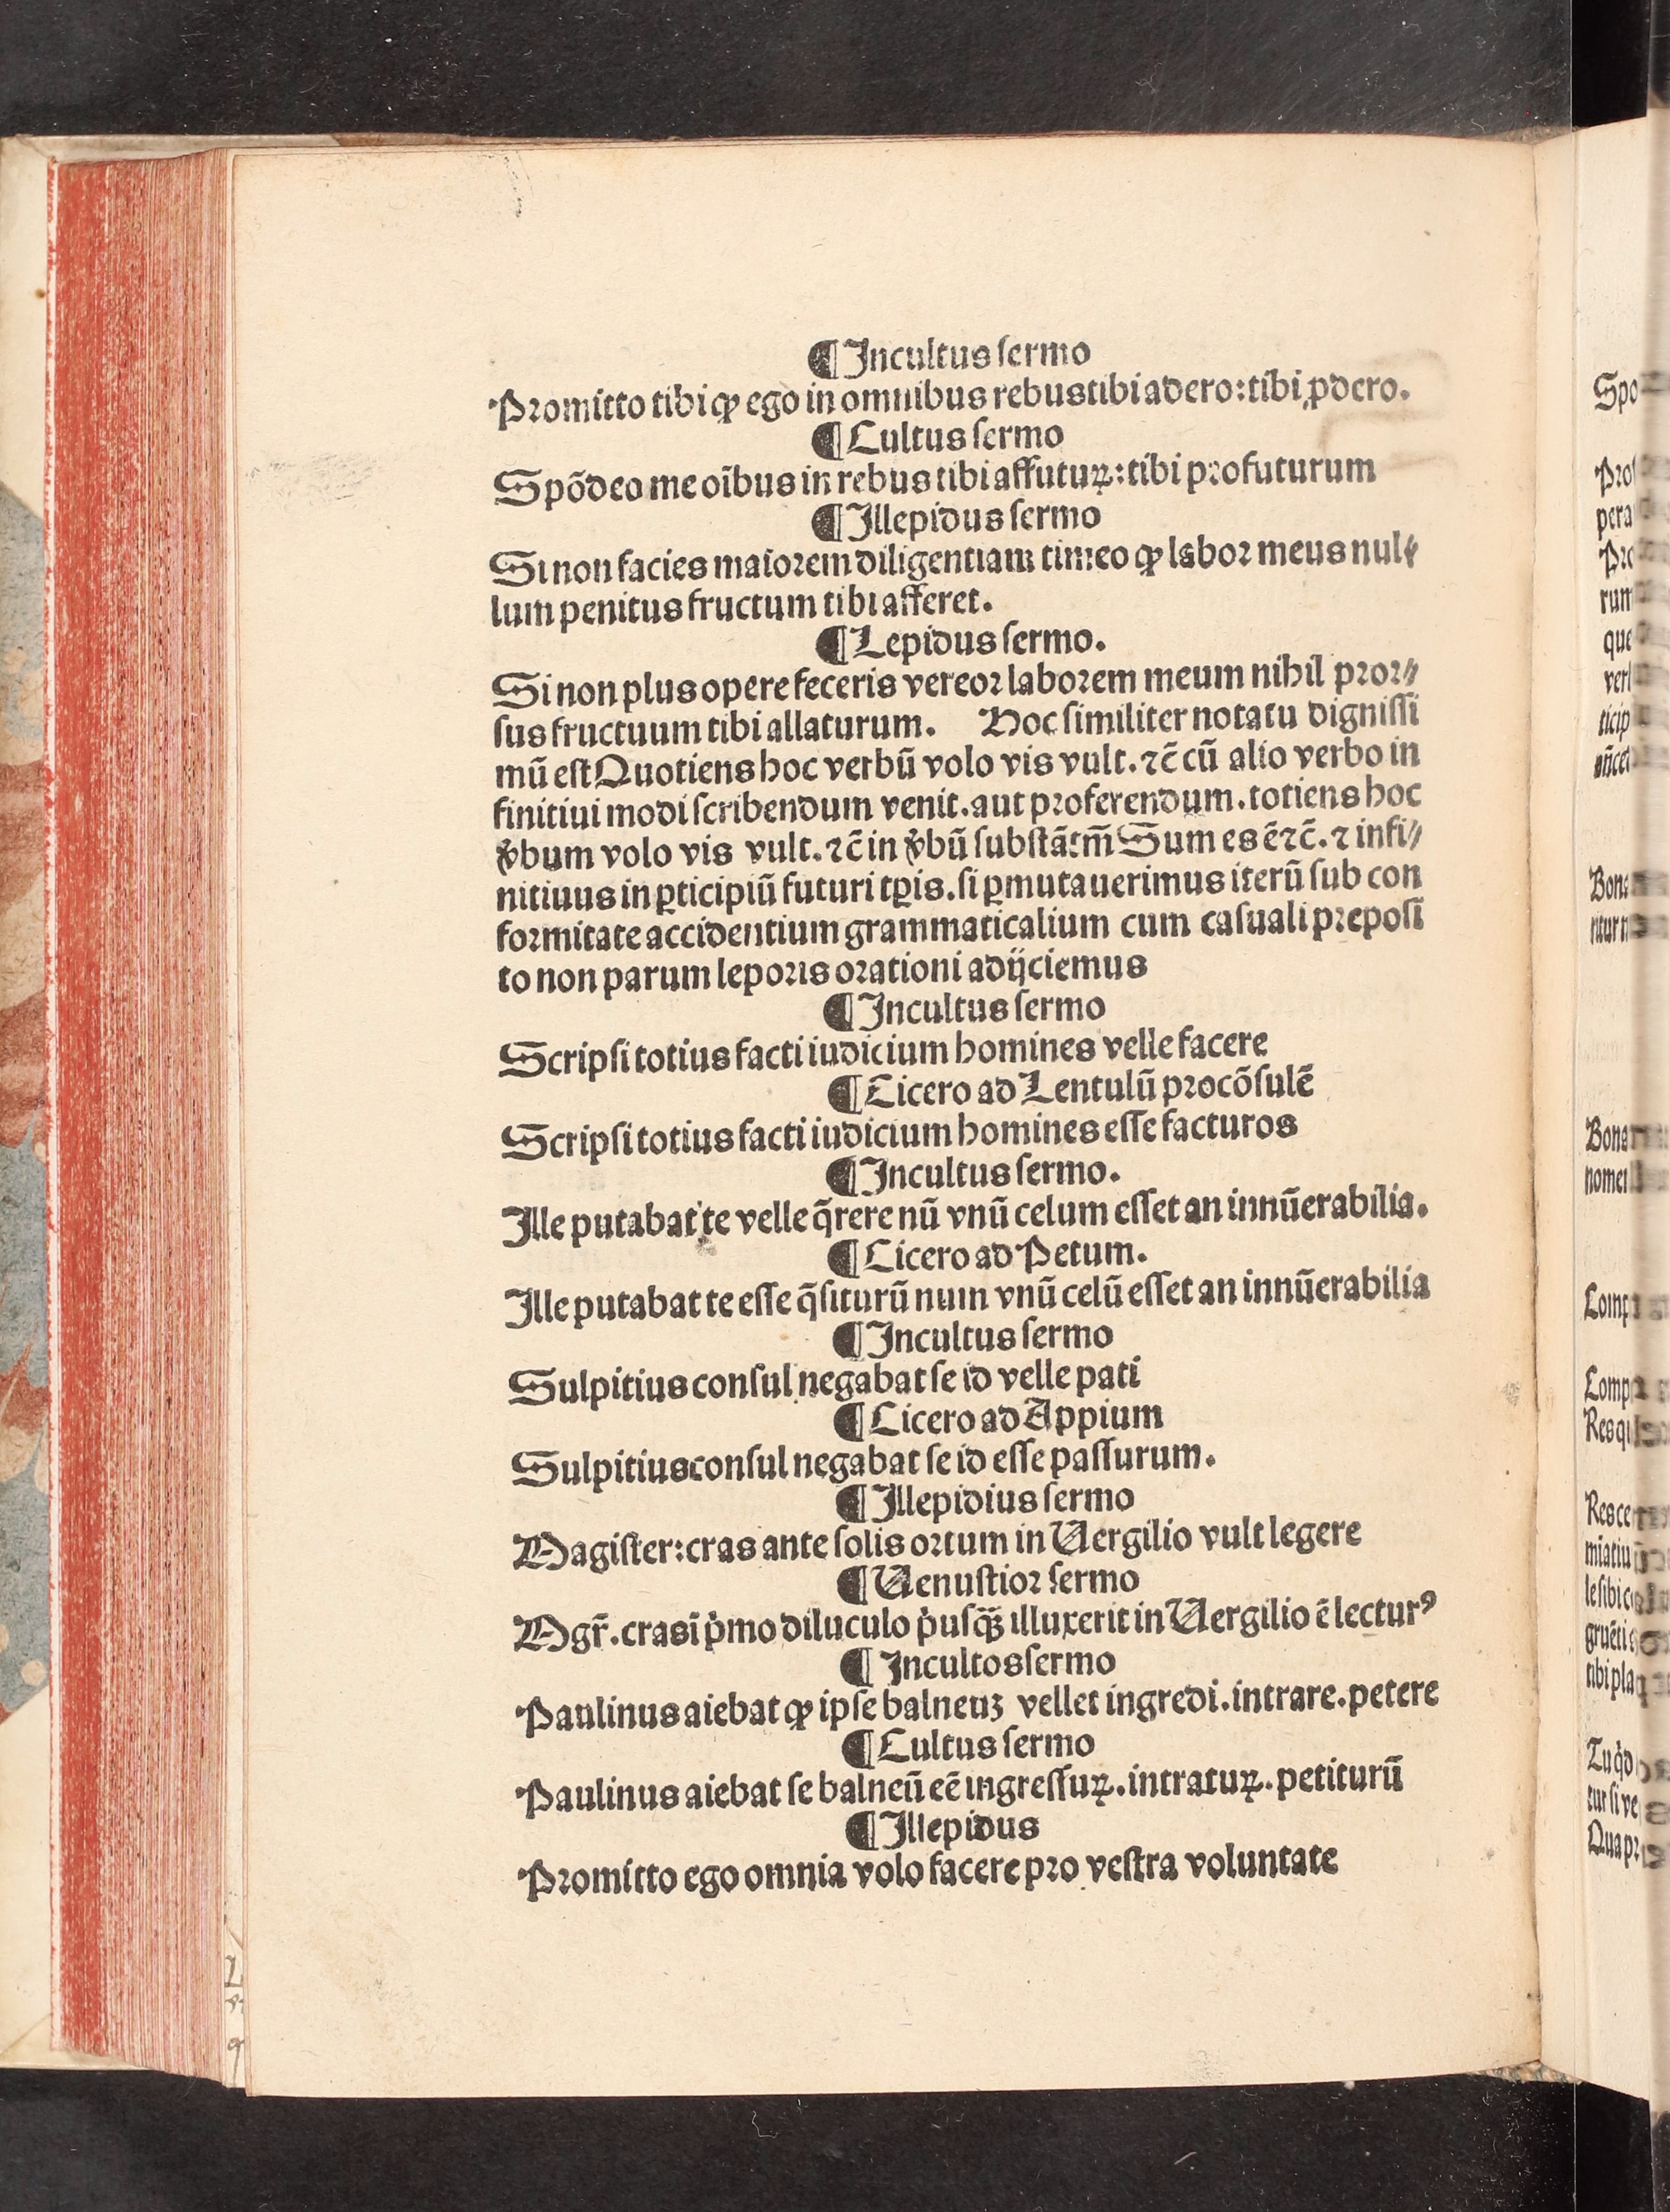 ¶Incultus ſermo
Promitto tibi ꝙ ego in omnibus rebus tibi adero: tibi ꝓdero.
¶Cultus ſermo
Spōdeo me oībus in rebus tibi affuturꝝ: tibi profuturum
¶Illepidus ſermo
Si non facies maiorem diligentiam timeo ꝙ labor meus nul⸗
lum penitus fructum tibi afferet.
¶Lepidus ſermo.
Si non plus opere feceris vereor laborem meum nihil pror⸗
ſus fructuum tibi allaturum. Hoc ſimiliter notatu digniſſi
mū eſt Quotiens hoc verbū volo vis vult. ⁊c̄ cū alio verbo in
finitiui modi ſcribendum venit. aut proferendum. totiens hoc
v̆bum volo vis vult. ⁊c̄ in v̆bū ſubſtātm̄ Sum es ē ⁊c̄. ⁊ infi⸗
nitiuus in ꝑticipiū futuri tꝑis. ſi ꝑmutauerimus iterū ſub con
formitate accidentium grammaticalium cum caſuali prepoſi
to non parum leporis orationi adijciemus
¶Incultus ſermo
Scripſi totius facti iudicium homines velle facere
¶Cicero ad Lentulū procōſulē
Scripſi totius facti iudicium homines eſſe facturos
¶Incultus ſermo.
Ille putabat te velle q̄rere nū vnū celum eſſet an innūerabilia.
¶Cicero ad Petum.
Ille putabat te eſſe q̄ſiturū num vnū celū eſſet an innūerabilia
¶Incultus ſermo
Sulpitius conſul negabat ſe id velle pati
¶Cicero ad Appium
Sulpitius conſul negabat ſe id eſſe paſſurum.
¶Illepidius ſermo
Magiſter: cras ante ſolis ortum in Uergilio vult legere
¶Uenuſtior ſermo
Mgr̄. cras ī pͥmo diluculo pͥuſqᷓꝫ illuxerit in Uergilio ē lecturꝰ
¶Incultos ſermo
Paulinus aiebat ꝙ ipſe balneuꝫ vellet ingredi. intrare. petere
¶Cultus ſermo
Paulinus aiebat ſe balneū eē ingreſſuꝝ. intratuꝝ. petiturū
¶Illepidus
Promitto ego omnia volo facere pro veſtra voluntate